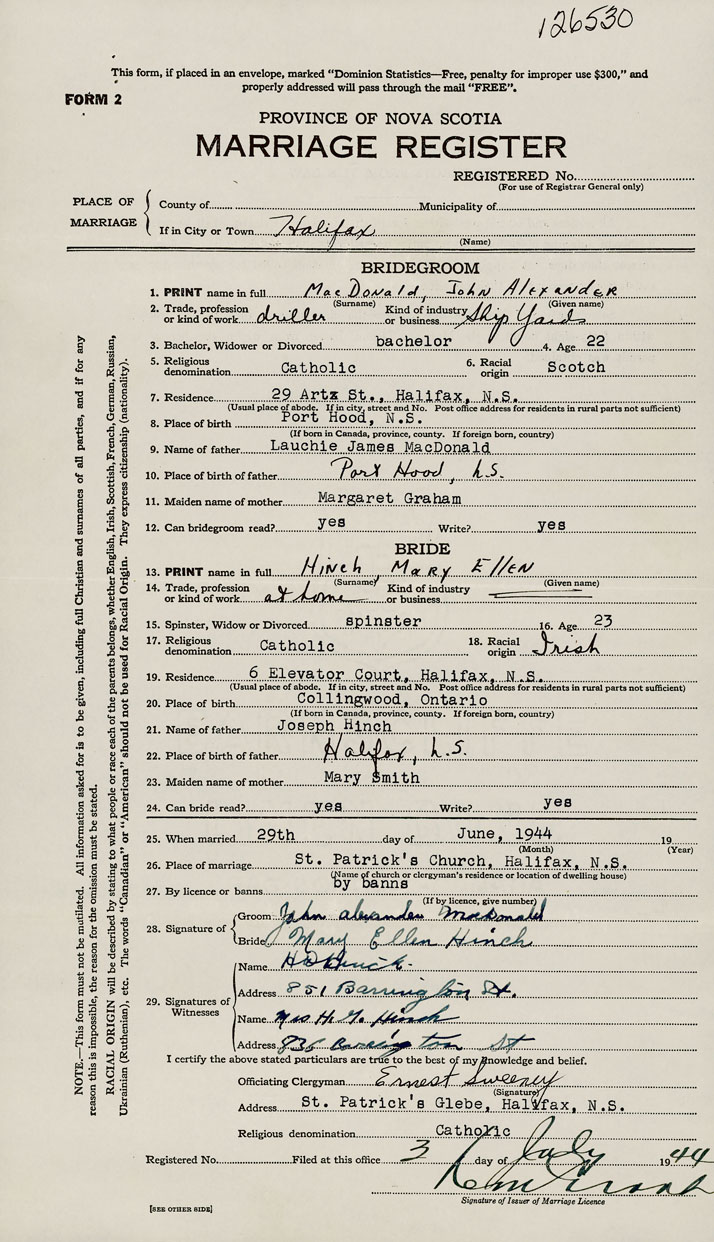 126530
This form, if placed in an envelope, marked "Dominion Statistics—Free, penalty for improper use $300," and
properly addressed will pass through the mail "FREE".
FORM 2
PROVINCE OF NOVA SCOTIA
MARRIAGE REGISTER
REGISTERED No.
(For use of Registrar General only)
PLACE OF MARRIAGE
County of Municipality of
If in City or Town Halifax
(Name)
BRIDEGROOM
1. PRINT name in full MacDonald, John Alexander
(Surname) (Given name)
2. Trade, profession or kind of work driller Kind of industry or business Ship Yards
3. Bachelor, Widower or Divorced bachelor 4. Age 22
5. Religious denomination Catholic 6. Racial origin Scotch
7. Residence 29 Artz St., Halifax, N.S.
(Usual place of abode. If in city, street and No. Post office address for residents in rural parts not sufficient)
8. Place of birth Port Hood, N.S.
(If born in Canada, province, county. If foreign born, country)
9. Name of father Lauchie James MacDonald
10. Place of birth of father Port Hood, N.S.
11. Maiden name of mother Margaret Graham
12. Can bridegroom read? yes Write? yes
BRIDE
13. PRINT name in full Hinch, Mary Ellen
(Surname) (Given name)
14. Trade, profession or kind of work at home Kind of industry or business
15. Spinster, Widow or Divorced spinster 16. Age 23
17. Religious denomination Catholic 18. Racial origin Irish
19. Residence 6 Elevator Court, Halifax, N.S.
(Usual place of abode. If in city, street and No. Post office address for residents in rural parts not sufficient)
20. Place of birth Collingwood, Ontario
(If born in Canada, province, county. If foreign born, country)
21. Name of father Joseph Hinch
22. Place of birth of father Halifax, N.S.
23. Maiden name of mother Mary Smith
24. Can bride read? yes Write? yes
25. When married 29th day of June, 1944 19
(Month) (Year)
26. Place of marriage St. Patrick's Church, Halifax, N.S.
(Name of church or clergyman's residence or location of dwelling house)
27. By licence or banns by banns
(If by licence, give number)
28. Signature of
Groom John Alexander MacDonald
Bride Mary Ellen Hinch
29. Signatures of Witnesses
Name
Address 851 Barrington St.
Name Mrs H. Hinch
Address Barrington St
I certify the above stated particulars are true to the best of my knowledge and belief.
Officiating Clergyman Ernest Sweeney
(Signature)
Address St. Patrick's Glebe, Halifax, N.S.
Religious denomination Catholic
Registered No. Filed at this office 3 day of July 1944
Signature of Issuer of Marriage Licence
[SEE OTHER SIDE]
NOTE.—This form must not be mutilated. All information asked for is to be given, including full Christian and surnames of all parties, and if for any
reason this is impossible, the reason for the omission must be stated.
RACIAL ORIGIN will be described by stating to what people or race each of the parents belongs, whether English, Irish, Scottish, French, German, Russian,
Ukrainian (Ruthenian), etc. The words "Canadian" or "American" should not be used for Racial Origin. They express citizenship (nationality).